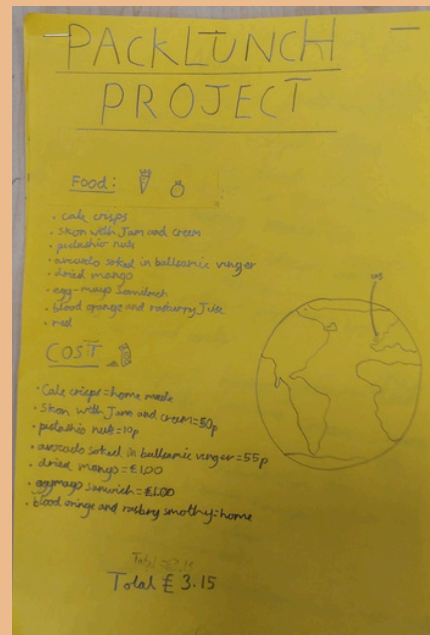 PACKLUNCH
PROJECT
Food:
• cale crisps
• skon with Jam and creem
• pistashio nuts
• avocado soked in ballsamic vinger
• dried mango
• egg-mayo
• blood orange and
COST
• Cale crisps = home made
• Skon with Jam and creem = 50p
• pistashio nuts = 10p
• avocado soked in ballsamic vinger = 55p
• dried mango = £1.00
• eggmayo sanwich = £1.00
• blood oringe and rasbury smothy = home
Total = £3.15
Total £ 3.15